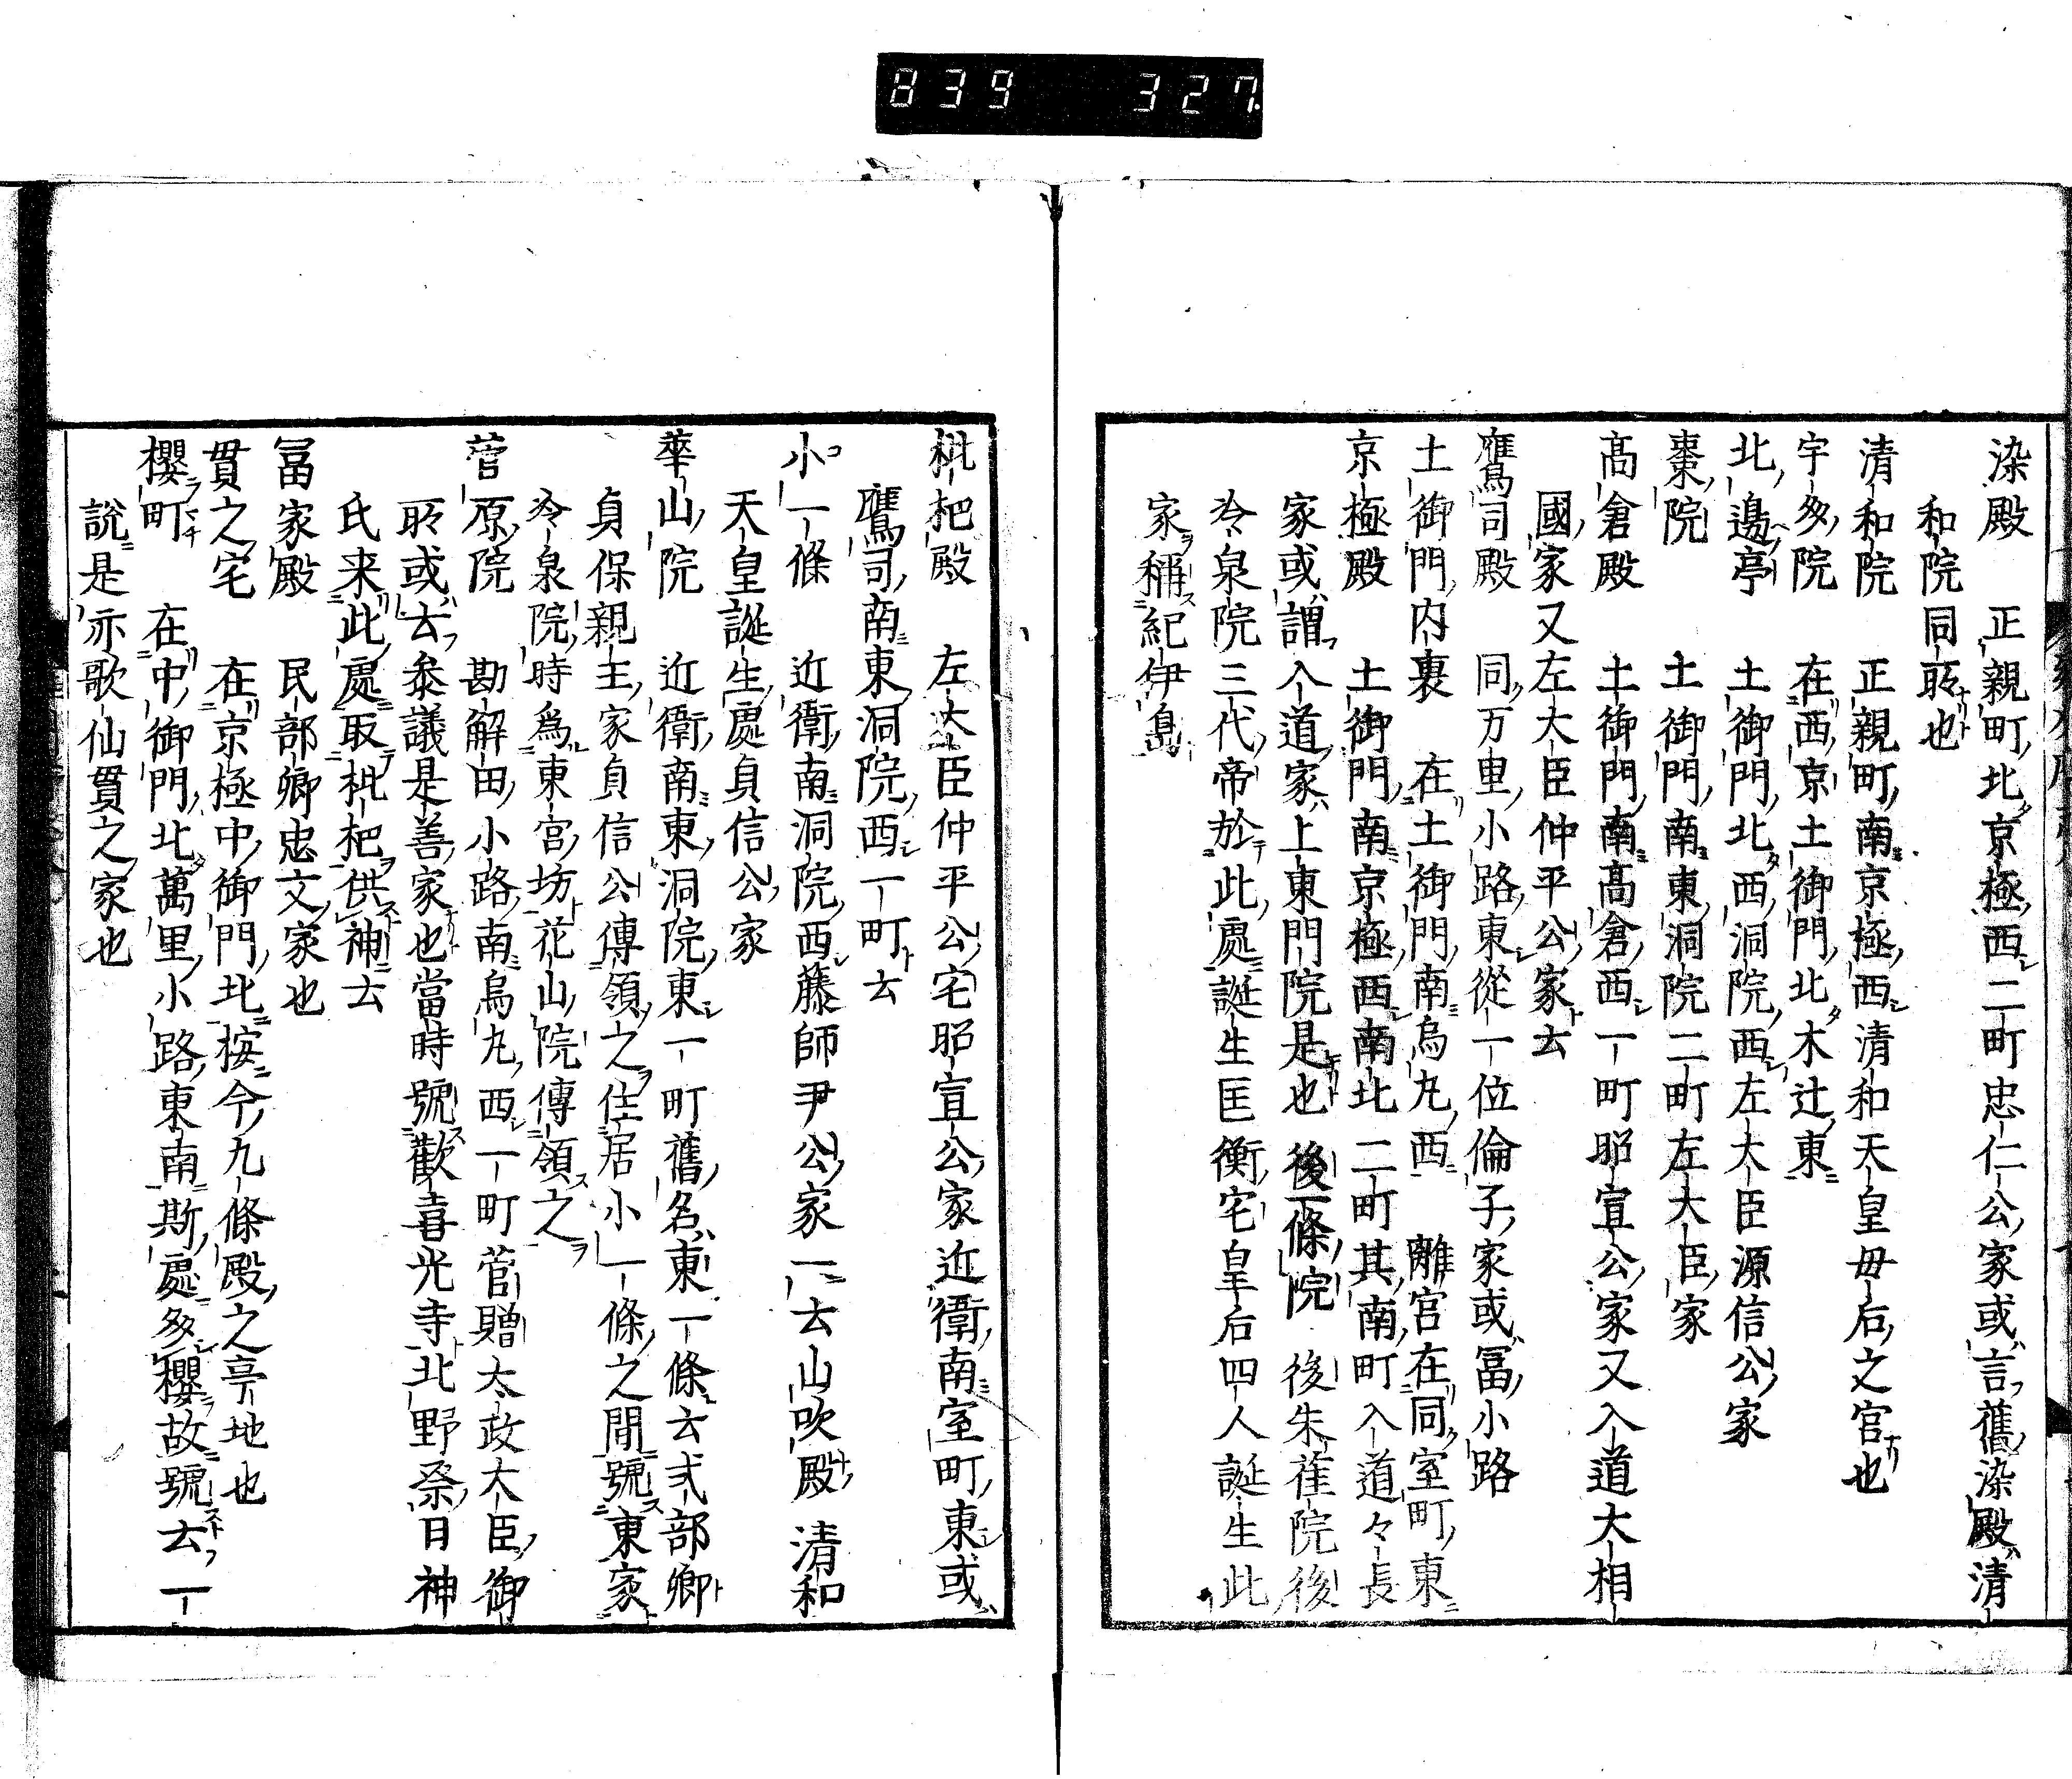 839 327
染殿 正親町北京極西二町忠仁公家或言舊染殿清
和院同所也
清和院 正親町南京極西清和天皇毋后之宮也
宇多院 在西京土御門北木辻東
北邊亭 土御門北西洞院西左大臣源信公家
棗院 土御門南東洞院二町左大臣家
髙倉殿 土御門南髙倉西一町昭宣公家又入道大相
國家又左大臣仲平公家云
鷹司殿 同万里小路東從一位倫子家或冨小路
土御門内裏 在土御門南烏丸西 離宮在同室町東
京極殿 土御門南京極西南北二町其南町入道々長
家或謂入道家上東門院是也 後一條院 後朱雀院後
冷泉院三代帝於此處誕生匡衡宅皇后四人誕生此
家稱紀伊島
枇杷殿 左大臣仲平公宅昭宣公家近衛南室町東或
鷹司南東洞院西一町云
小一條 近衛南洞院西藤師尹公家一云山吹殿 清和
天皇誕生處貞信公家
華山院 近衛南東洞院東一町舊名東一條云式部卿
貞保親王家貞信公傳領之住居小一條之間號東家
冷泉院時爲東宮坊花山院傳領之
菅原院 勘解由小路南烏丸西一町菅贈太政大臣御
所或云叅議是善家也當時號歡喜光寺北野祭日神
氏来此處取枇杷供神云
冨家殿 民部卿忠文家也
貫之宅 在京極中御門北桉今九條殿之亭地也
櫻町 在中御門北萬里小路東南斯處多櫻故號云一
說是亦歌仙貫之家也